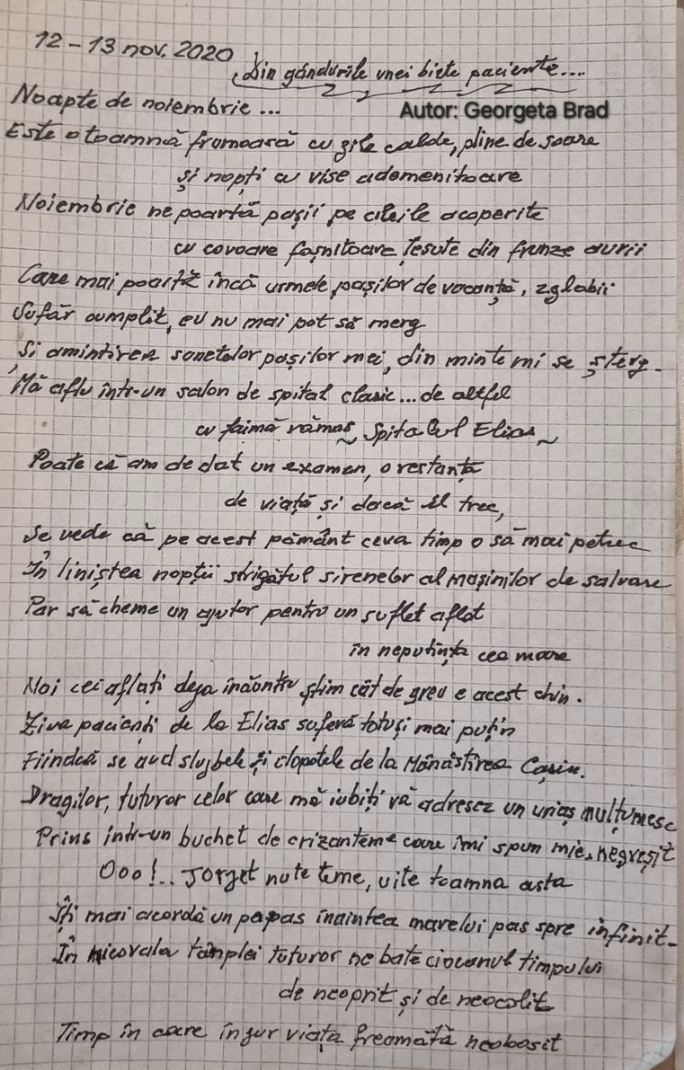 12-13 nov. 2020
Din gândurile unei biete paciente....
Noapte de noiembrie...
Autor: Georgeta Brad
Este o toamnă frumoasă cu zile calde, pline de soare
și nopți cu vise ademenitoare
Noiembrie ne poartă pașii pe aleile acoperite
cu covoare foșnitoare, țesute din frunze aurii
Care mai poartă încă urmele pașilor de vacanță, zglobii
Sufăr cumplit, eu nu mai pot să merg
Și amintirea sunetelor pașilor mei, din minte mi se șterg.
Mă aflu într-un salon de spital clasic... de altfel
cu faimă rămas, Spitalul Elias
Poate că am de dat un examen, o restanță
de viață și dacă îl trec,
Se vede că pe acest pământ ceva timp o să mai petrec
În liniștea nopții strigătul sirenelor al mașinilor de salvare
Par să cheme un ajutor pentru un suflet aflat
în neputința cea mare
Noi cei aflați deja înăontru știm cât de greu e acest chin.
Ziua pacienți de la Elias suferă totuși mai puțin
Fiindcă se aud slujbele și clopotele de la Mănăstirea Cașin.
Dragilor, tuturor celor care mă iubiți vă adresez un uriaș mulțumesc
Prins într-un buchet de crizanteme care îmi spun mie, negreșit
Ooo!.. Jorjet nu te teme, uite toamna asta
Îți mai acordă un popas înaintea marelui pas spre infinit.
În nicovala tâmplei tuturor ne bate ciocanul timpului
de neoprit și de neocolit
Timp în care în jur viața freamătă neobosit